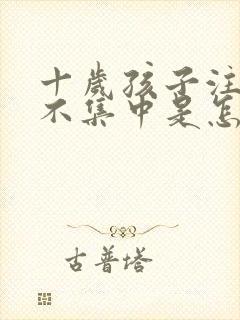 十岁孩子注
不集中是怎
古普塔